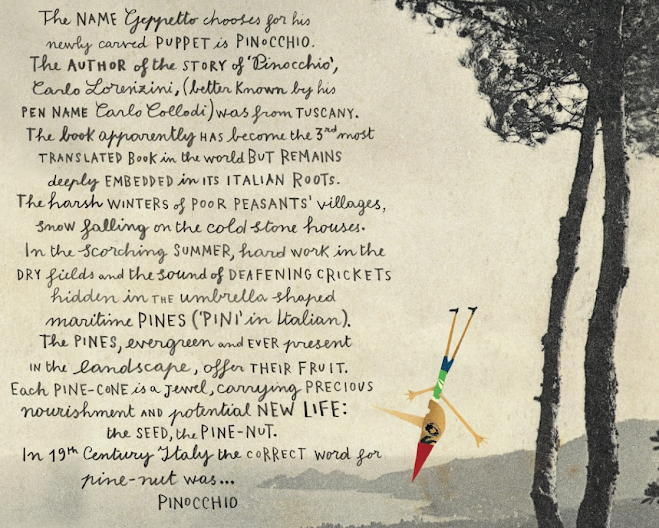 The NAME Geppetto chooses for his
newly carved PUPPET is PINOCCHIO.
The AUTHOR of the STORY of 'Pinocchio',
Carlo Lorenzini, (better known by his
PEN NAME Carlo Collodi) was from TUSCANY.
The book apparently HAS become the 3rd most
TRANSLATED Book in the world BUT REMAINS
deeply EMBEDDED in ITS ITALIAN ROOTS.
The harsh WINTERS of POOR PEASANTS' villages,
snow falling on the cold stone houses.
In the scorching SUMMER, hard work in the
DRY fields and the sound of DEAFENING CRICKETS
hidden in THE umbrella shaped
maritime PINES ('PINI' in Italian).
The PINES, evergreen and EVER present
IN the landscape, offer THEIR FRUIT.
Each PINE-CONE is a jewel, carrying PRECIOUS
nourishment AND potential NEW LIFE:
the SEED, the PINE-NUT.
In 19th Century Italy the CORRECT word for
pine-nut was...
PINOCCHIO